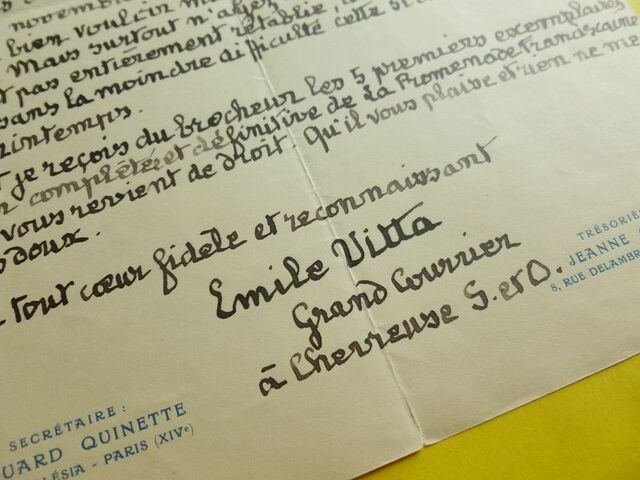 novembre
bien vouloir m
Mais surtout n'allez
t pas entièrement rétablie,
sans la moindre dificulté cette
rintemps.
t je reçois du brocheur les 5 premiers exemplaires
n complétée et définitive de La Promenade Franciscaine
vous revient de droit. Qu'il vous plaise et rien ne me
s doux.
tout cœur fidèle et reconnaissant
Emile Vitta
Grand Courrier
à Chevreuse S. et O.
TRÉSORIÈ
JEANNE
8, RUE DELAMBR
SECRÉTAIRE :
UARD QUINETTE
LÉSIA - PARIS (XIVe)